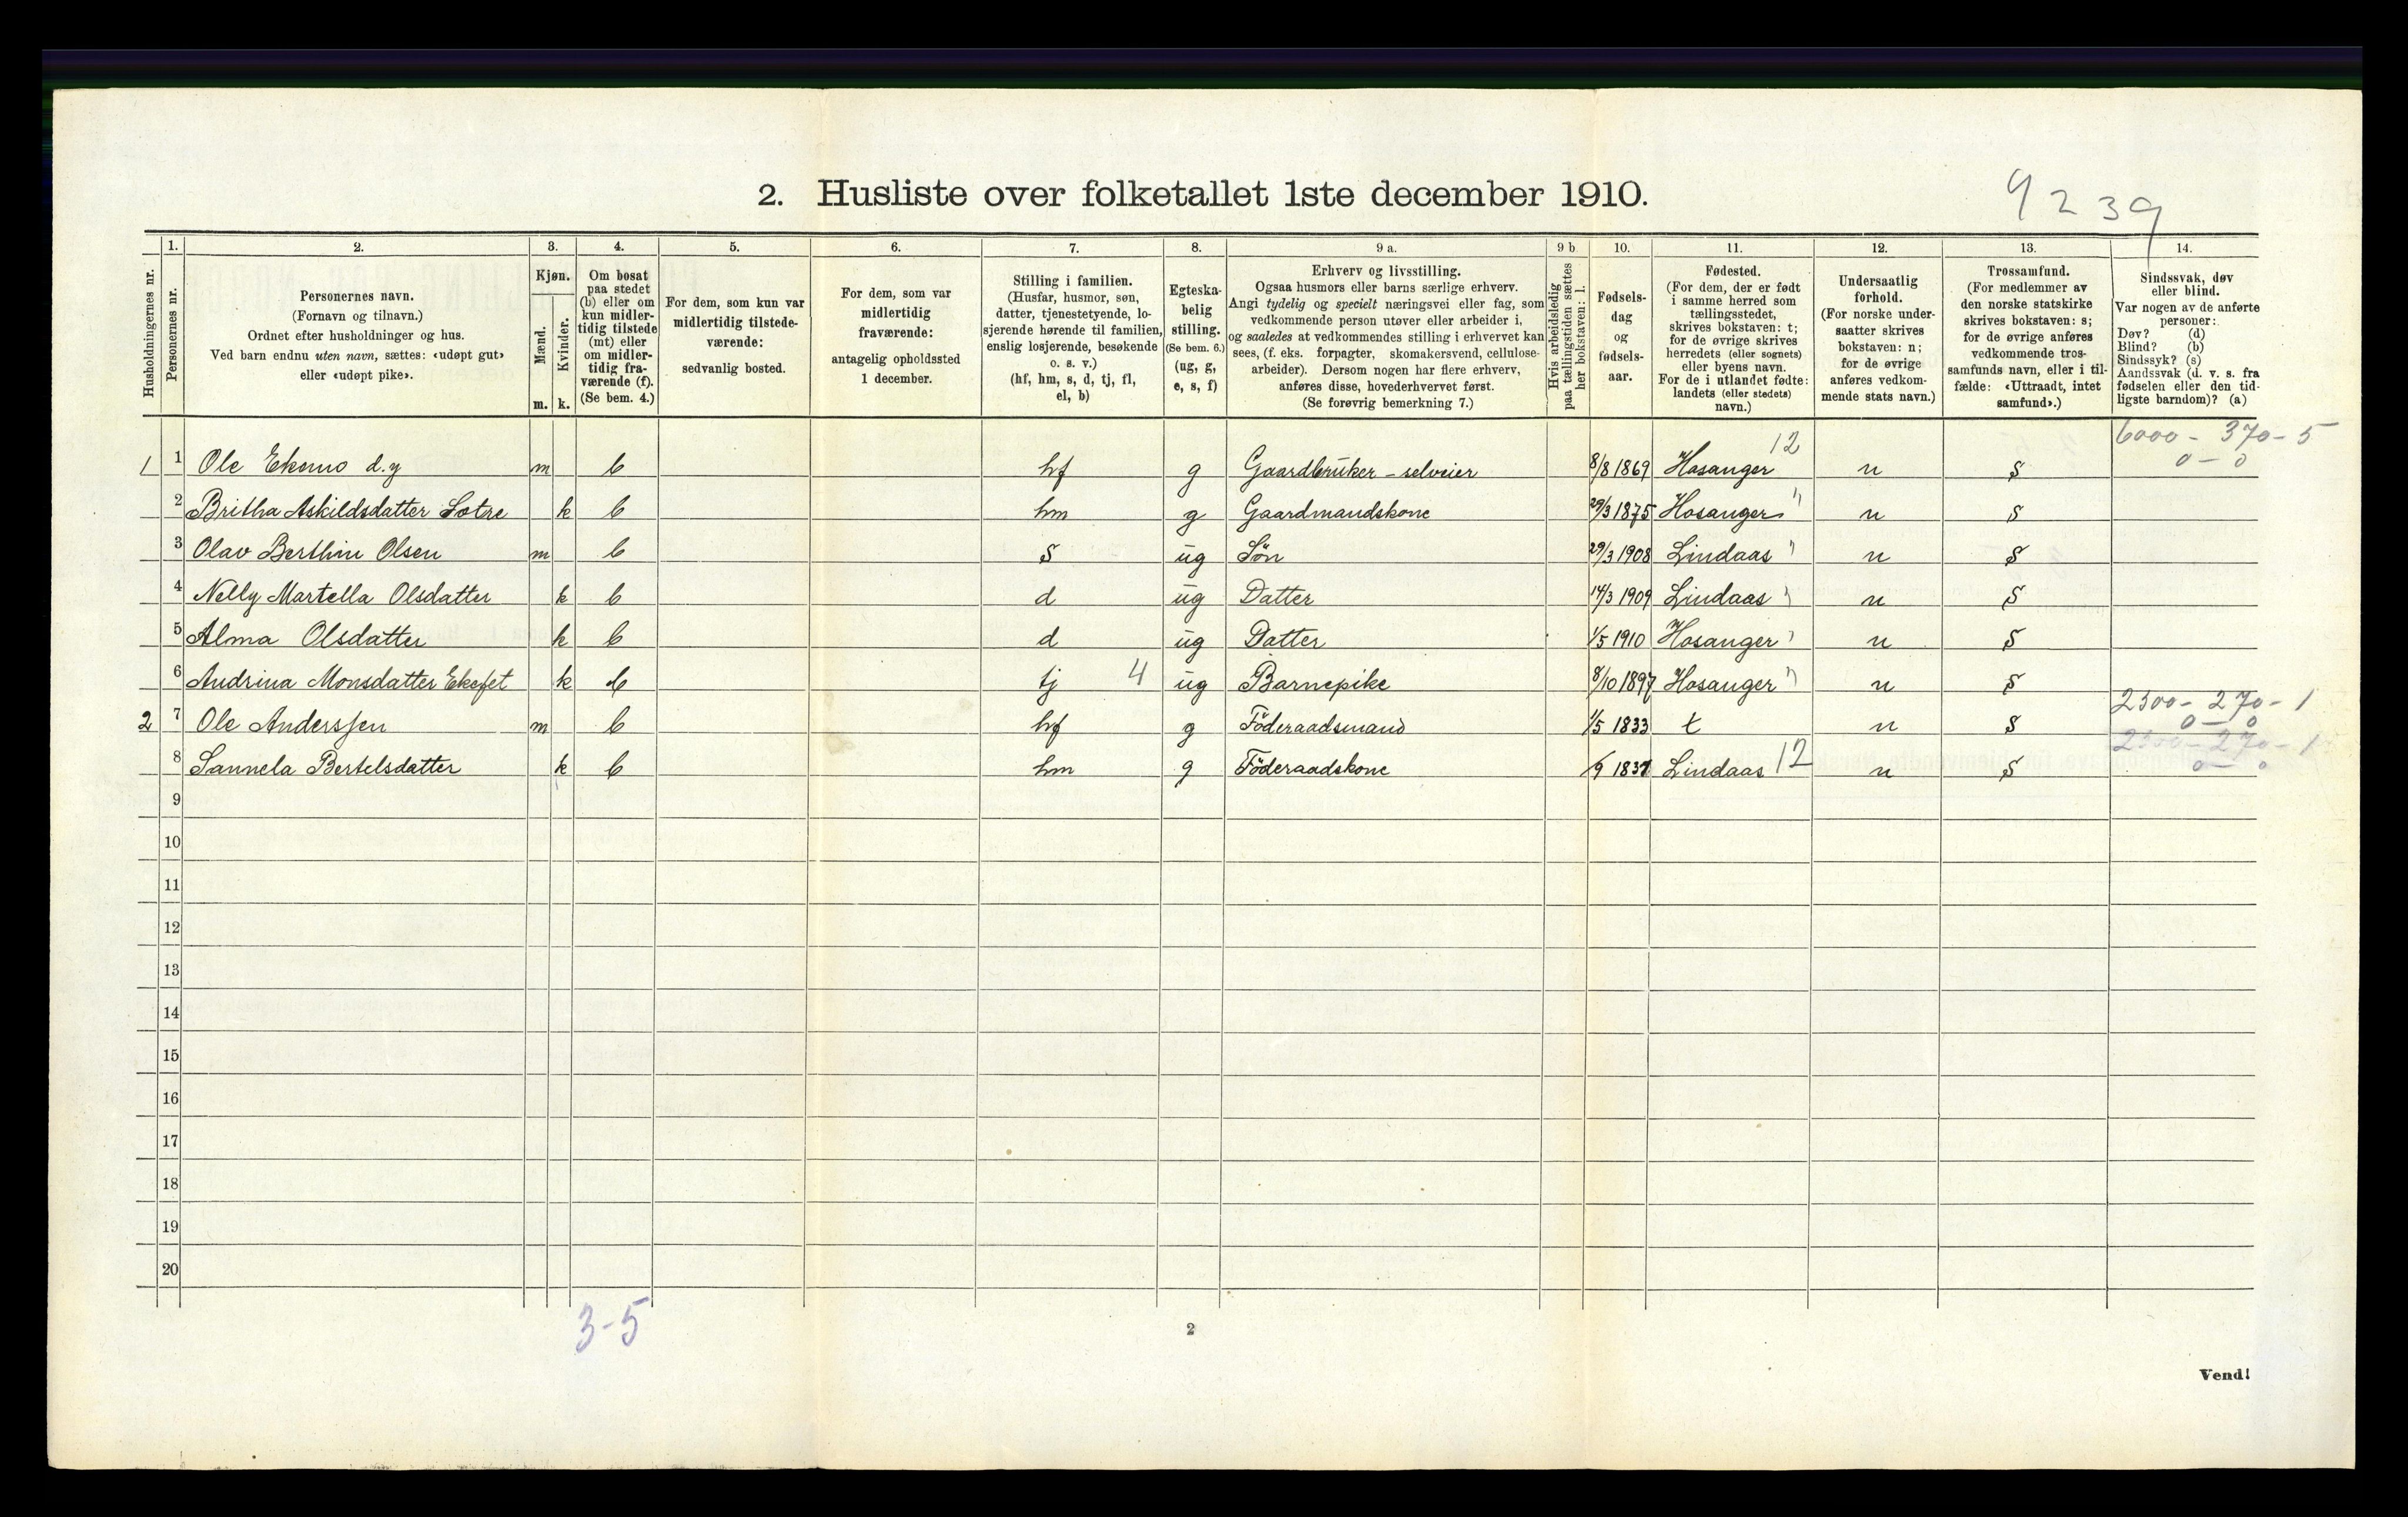 2. Husliste over folketallet 1ste december 1910.
9239
Husholdningernes nr.
1.
Personernes nr.
2.
Personernes navn.
(Fornavn og tilnavn.)
Ordnet efter husholdninger og hus.
Ved barn endnu uten navn, sættes: «udøpt gut»
eller «udøpt pike».
3.
Kjøn.
Mænd.
Kvinder.
m. k.
4.
Om bosat
paa stedet
(b) eller om
kun midler-
tidig tilstede
(mt) eller
om midler-
tidig fra-
værende (f).
(Se bem. 4.)
5.
For dem, som kun var
midlertidig tilstede-
værende:
sedvanlig bosted.
6.
For dem, som var
midlertidig
fraværende:
antagelig opholdssted
1 december.
7.
Stilling i familien.
(Husfar, husmor, søn,
datter, tjenestetyende, lo-
sjerende hørende til familien,
enslig losjerende, besøkende
o. s. v.)
(hf, hm, s, d, tj, fl,
el, b)
8.
Egteska-
belig
stilling.
(Se bem. 6.)
(ug, g,
e, s, f)
9 a.
Erhverv og livsstilling.
Ogsaa husmors eller barns særlige erhverv.
Angi tydelig og specielt næringsvei eller fag, som
vedkommende person utøver eller arbeider i,
og saaledes at vedkommendes stilling i erhvervet kan
sees, (f. eks. forpagter, skomakersvend, cellulose-
arbeider). Dersom nogen har flere erhverv,
anføres disse, hovederhvervet først.
(Se forøvrig bemerkning 7.)
9 b.
Hvis arbeidsledig
paa tællingstiden sættes
her bokstaven: l.
10.
Fødsels-
dag
og
fødsels-
aar.
11.
Fødested.
(For dem, der er født
i samme herred som
tællingsstedet,
skrives bokstaven: t;
for de øvrige skrives
herredets (eller sognets)
eller byens navn.
For de i utlandet fødte:
landets (eller stedets)
navn.)
12.
Undersaatlig
forhold.
(For norske under-
saatter skrives
bokstaven: n;
for de øvrige
anføres vedkom-
mende stats navn.)
13.
Trossamfund.
(For medlemmer av
den norske statskirke
skrives bokstaven: s;
for de øvrige anføres
vedkommende tros-
samfunds navn, eller i til-
fælde: «Uttraadt, intet
samfund».)
14.
Sindssvak, døv
eller blind.
Var nogen av de anførte
personer:
Døv? (d)
Blind? (b)
Sindssyk? (s)
Aandssvak (d. v. s. fra
fødselen eller den tid-
ligste barndom)? (a)
1 1 Ole Ekemo d.y m b hf g Gaardbruker - selveier 8/8 1869 Hosanger 12 n S 6000 - 370 - 5 0 - 0
2 Britha Askildsdatter Sotre k b hm g Gaardmandskone 29/3 1875 Hosanger " n S
3 Olav Berthin Olsen m b S ug Søn 29/3 1908 Lindaas " n S
4 Nelly Martella Olsdatter k b d ug Datter 14/3 1909 Lindaas " n S
5 Alma Olsdatter k b d ug Datter 1/5 1910 Hosanger " n S
6 Andrina Monsdatter k b tj 4 ug Barnepike 8/10 1897 Hosanger " n S
2 7 Ole Anderssen m b hf g Föderaadsmand 1/5 1833 t n S 2300 - 270 - 1 0 - 0
8 Sannela Bertelsdatter k b hm g Föderaadskone /9 Lindaas 12 n S 2300 - 270 - 1 0 - 0
9
10
11
12
13
14
15
16
17
18
19
20
3-5
2
Vend!